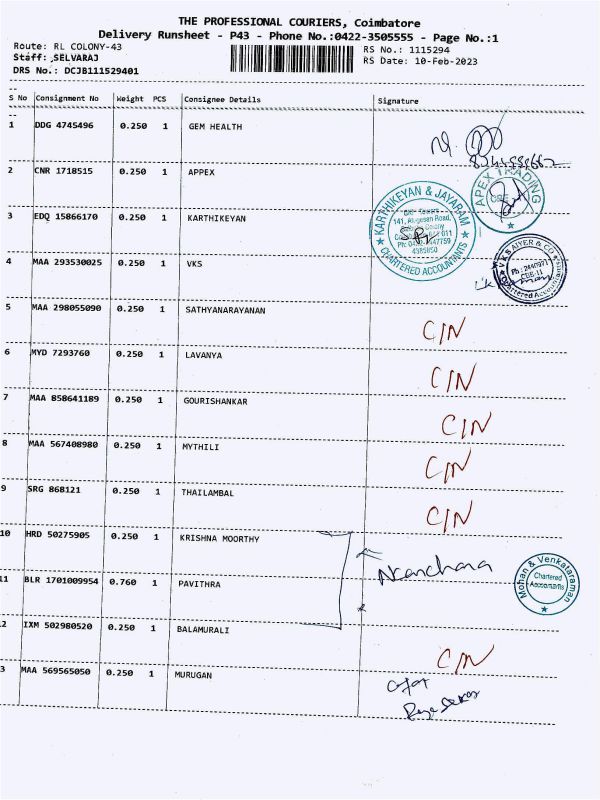 THE PROFESSIONAL COURIERS, Coimbatore
Delivery Runsheet - P43 - Phone No.:0422-3505555 - Page No.:1
Route: RL COLONY-43
RS No.: 1115294
Staff: SELVARAJ
RS Date: 10-Feb-2023
DRS No.: DCJB111529401
S No Consignment No Weight PCS Consignee Details Signature
1 DDG 4745496 0.250 1 GEM HEALTH
2 CNR 1718515 0.250 1 APPEX
APEX TRADING
3 EDQ 15866170 0.250 1 KARTHIKEYAN
KARTHIKEYAN & JAYARAM
CHARTERED ACCOUNTANTS
4 MAA 293530025 0.250 1 VKS
V K S AIYER & CO
Chartered Accountants
5 MAA 298055090 0.250 1 SATHYANARAYANAN
C/N
6 MYD 7293760 0.250 1 LAVANYA
C/N
7 MAA 858641189 0.250 1 GOURISHANKAR
C/N
8 MAA 567408980 0.250 1 MYTHILI
C/N
9 SRG 868121 0.250 1 THAILAMBAL
C/N
10 HRD 50275905 0.250 1 KRISHNA MOORTHY
11 BLR 1701009954 0.760 1 PAVITHRA
Mohan & Venkataraman
Chartered
Accountants
2 IXM 502980520 0.250 1 BALAMURALI
C/N
3 MAA 569565050 0.250 1 MURUGAN